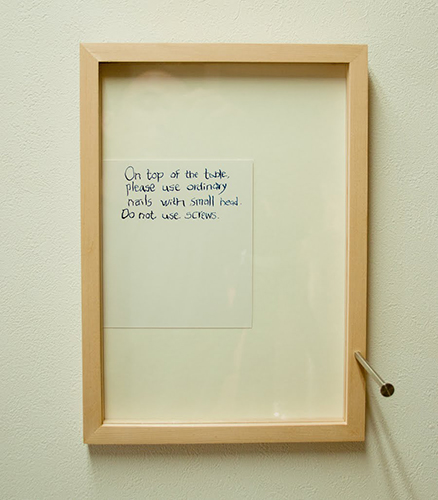 On top of the table,
please use ordinary
nails with small head.
Do not use screws.